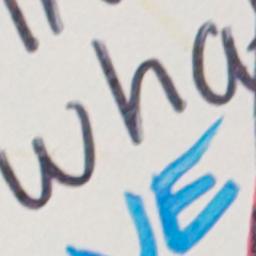 wha
VE